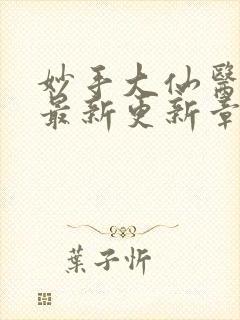 妙手大仙醫
最新更新章
葉子忻